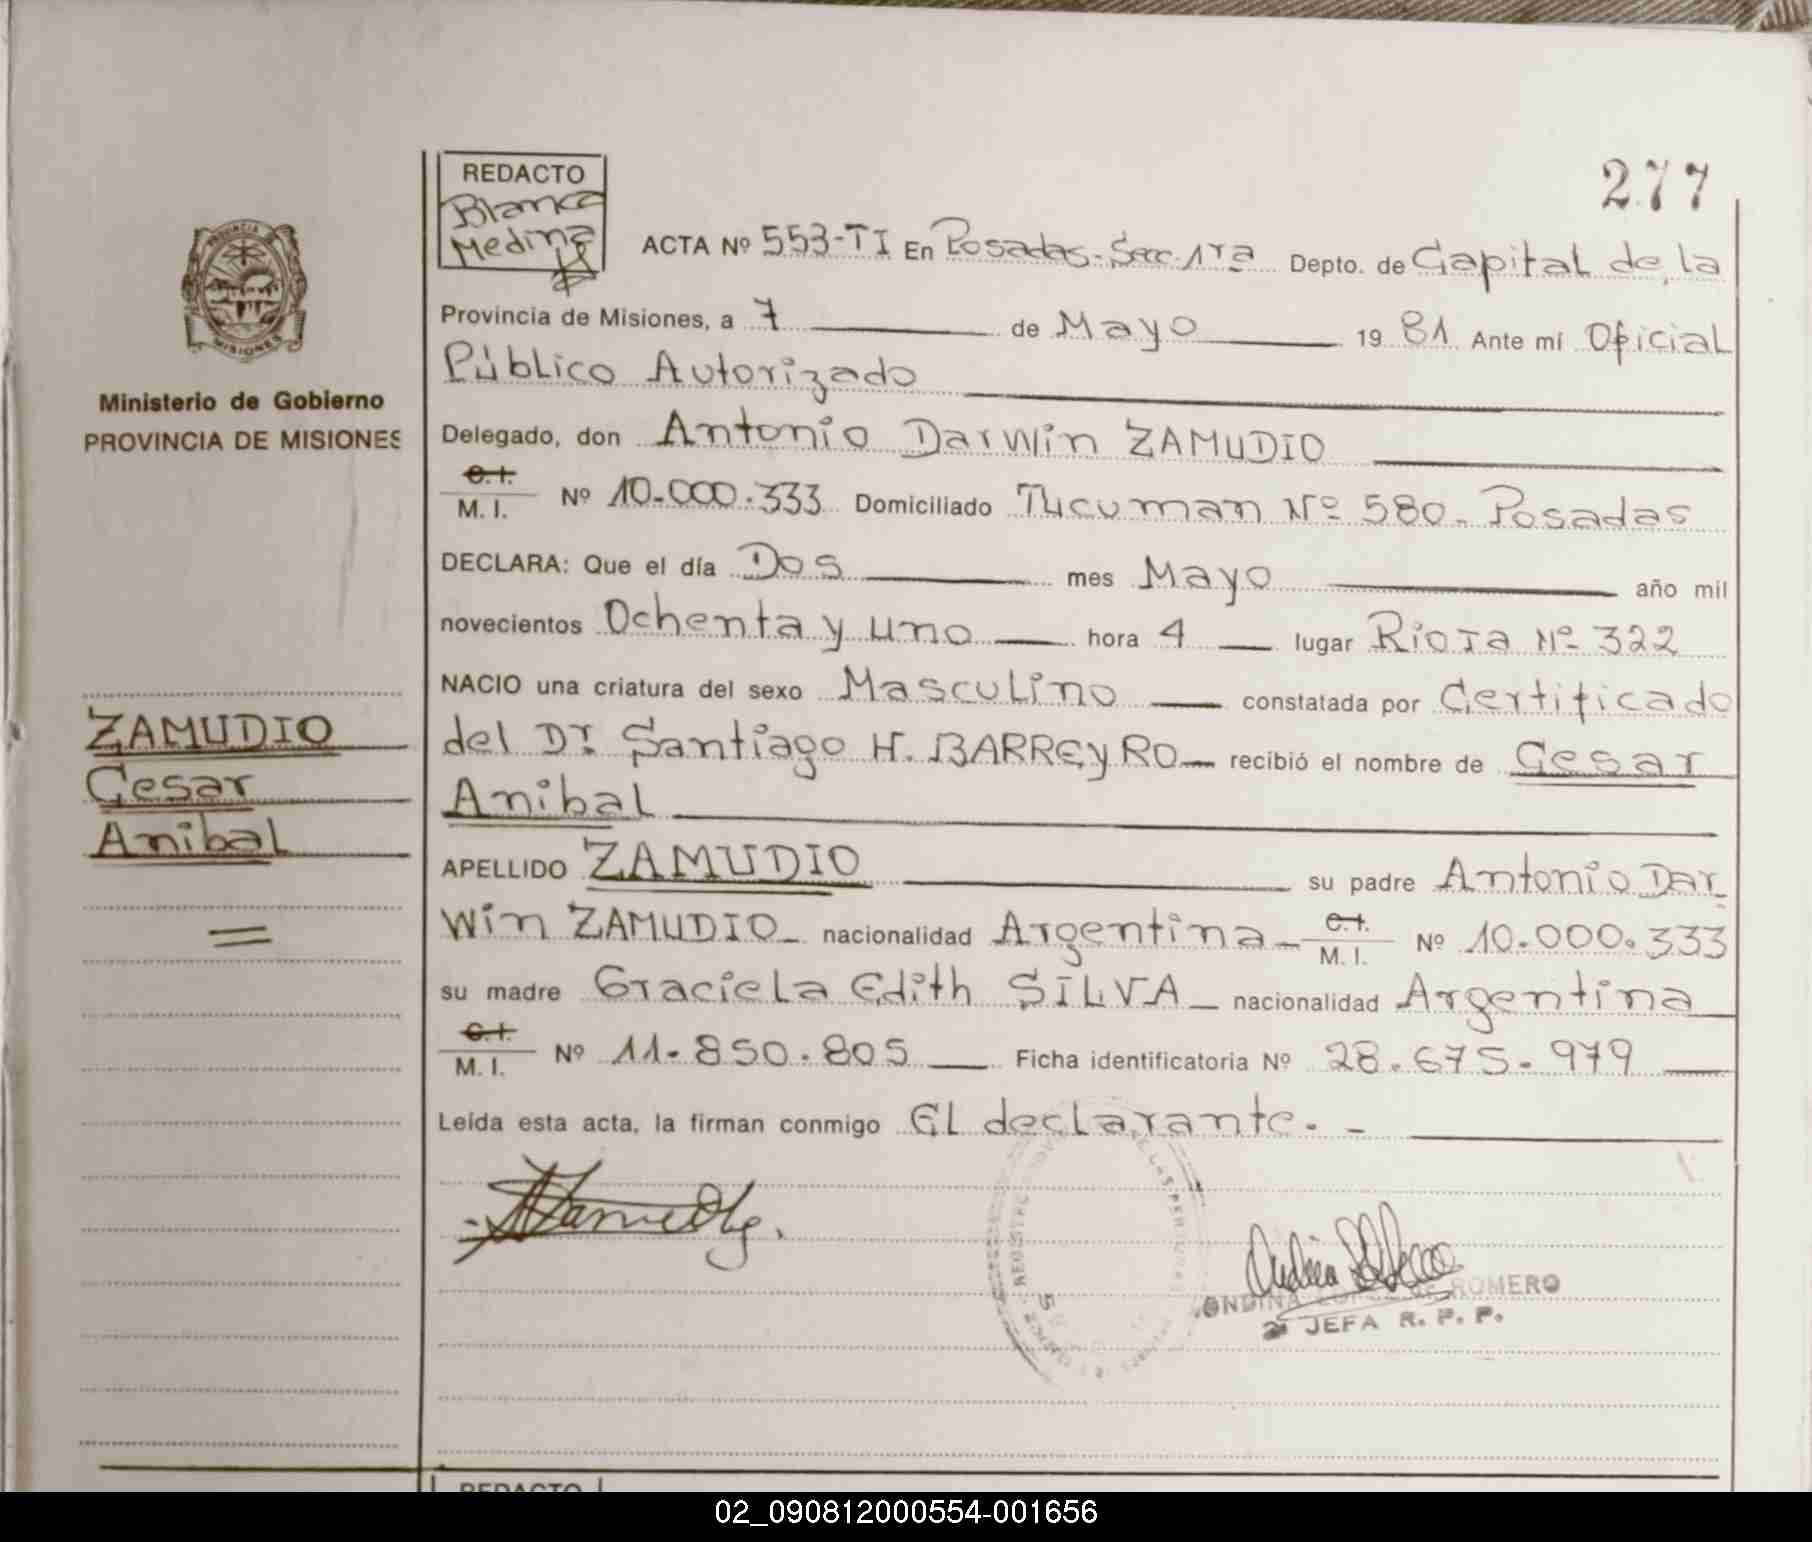 277
REDACTO
Blanca
Medina
ACTA Nº 553-TI En Posadas-Secc. 1ra Depto. de Capital de la
Provincia de Misiones, a 7 de Mayo 19 81 Ante mí Oficial
Público Autorizado
Delegado, don Antonio Darwin ZAMUDIO
C.I.
M. I. Nº 10.000.333 Domiciliado Tucuman Nº 580. Posadas
DECLARA: Que el día Dos mes Mayo año mil
novecientos Ochenta y uno hora 4 lugar Rioja Nº 322
NACIO una criatura del sexo Masculino constatada por Certificado
del Dr. Santiago H. BARREYRO recibió el nombre de Cesar
Anibal
APELLIDO ZAMUDIO su padre Antonio Dar
win ZAMUDIO nacionalidad Argentina C.I.
M. I. Nº 10.000.333
su madre Graciela Edith SILVA nacionalidad Argentina
C.I.
M. I. Nº 11.850.805 Ficha identificatoria Nº 28.675.979
Leída esta acta, la firman conmigo El declarante. -
ONDINA ROMERO
JEFA R. P. P.
REDACTO
MISIONES
Ministerio de Gobierno
PROVINCIA DE MISIONES
ZAMUDIO
Cesar
Anibal
02_090812000554-001656